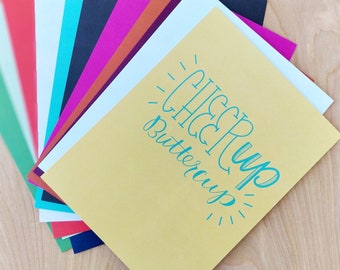 CHEER up
Buttercup